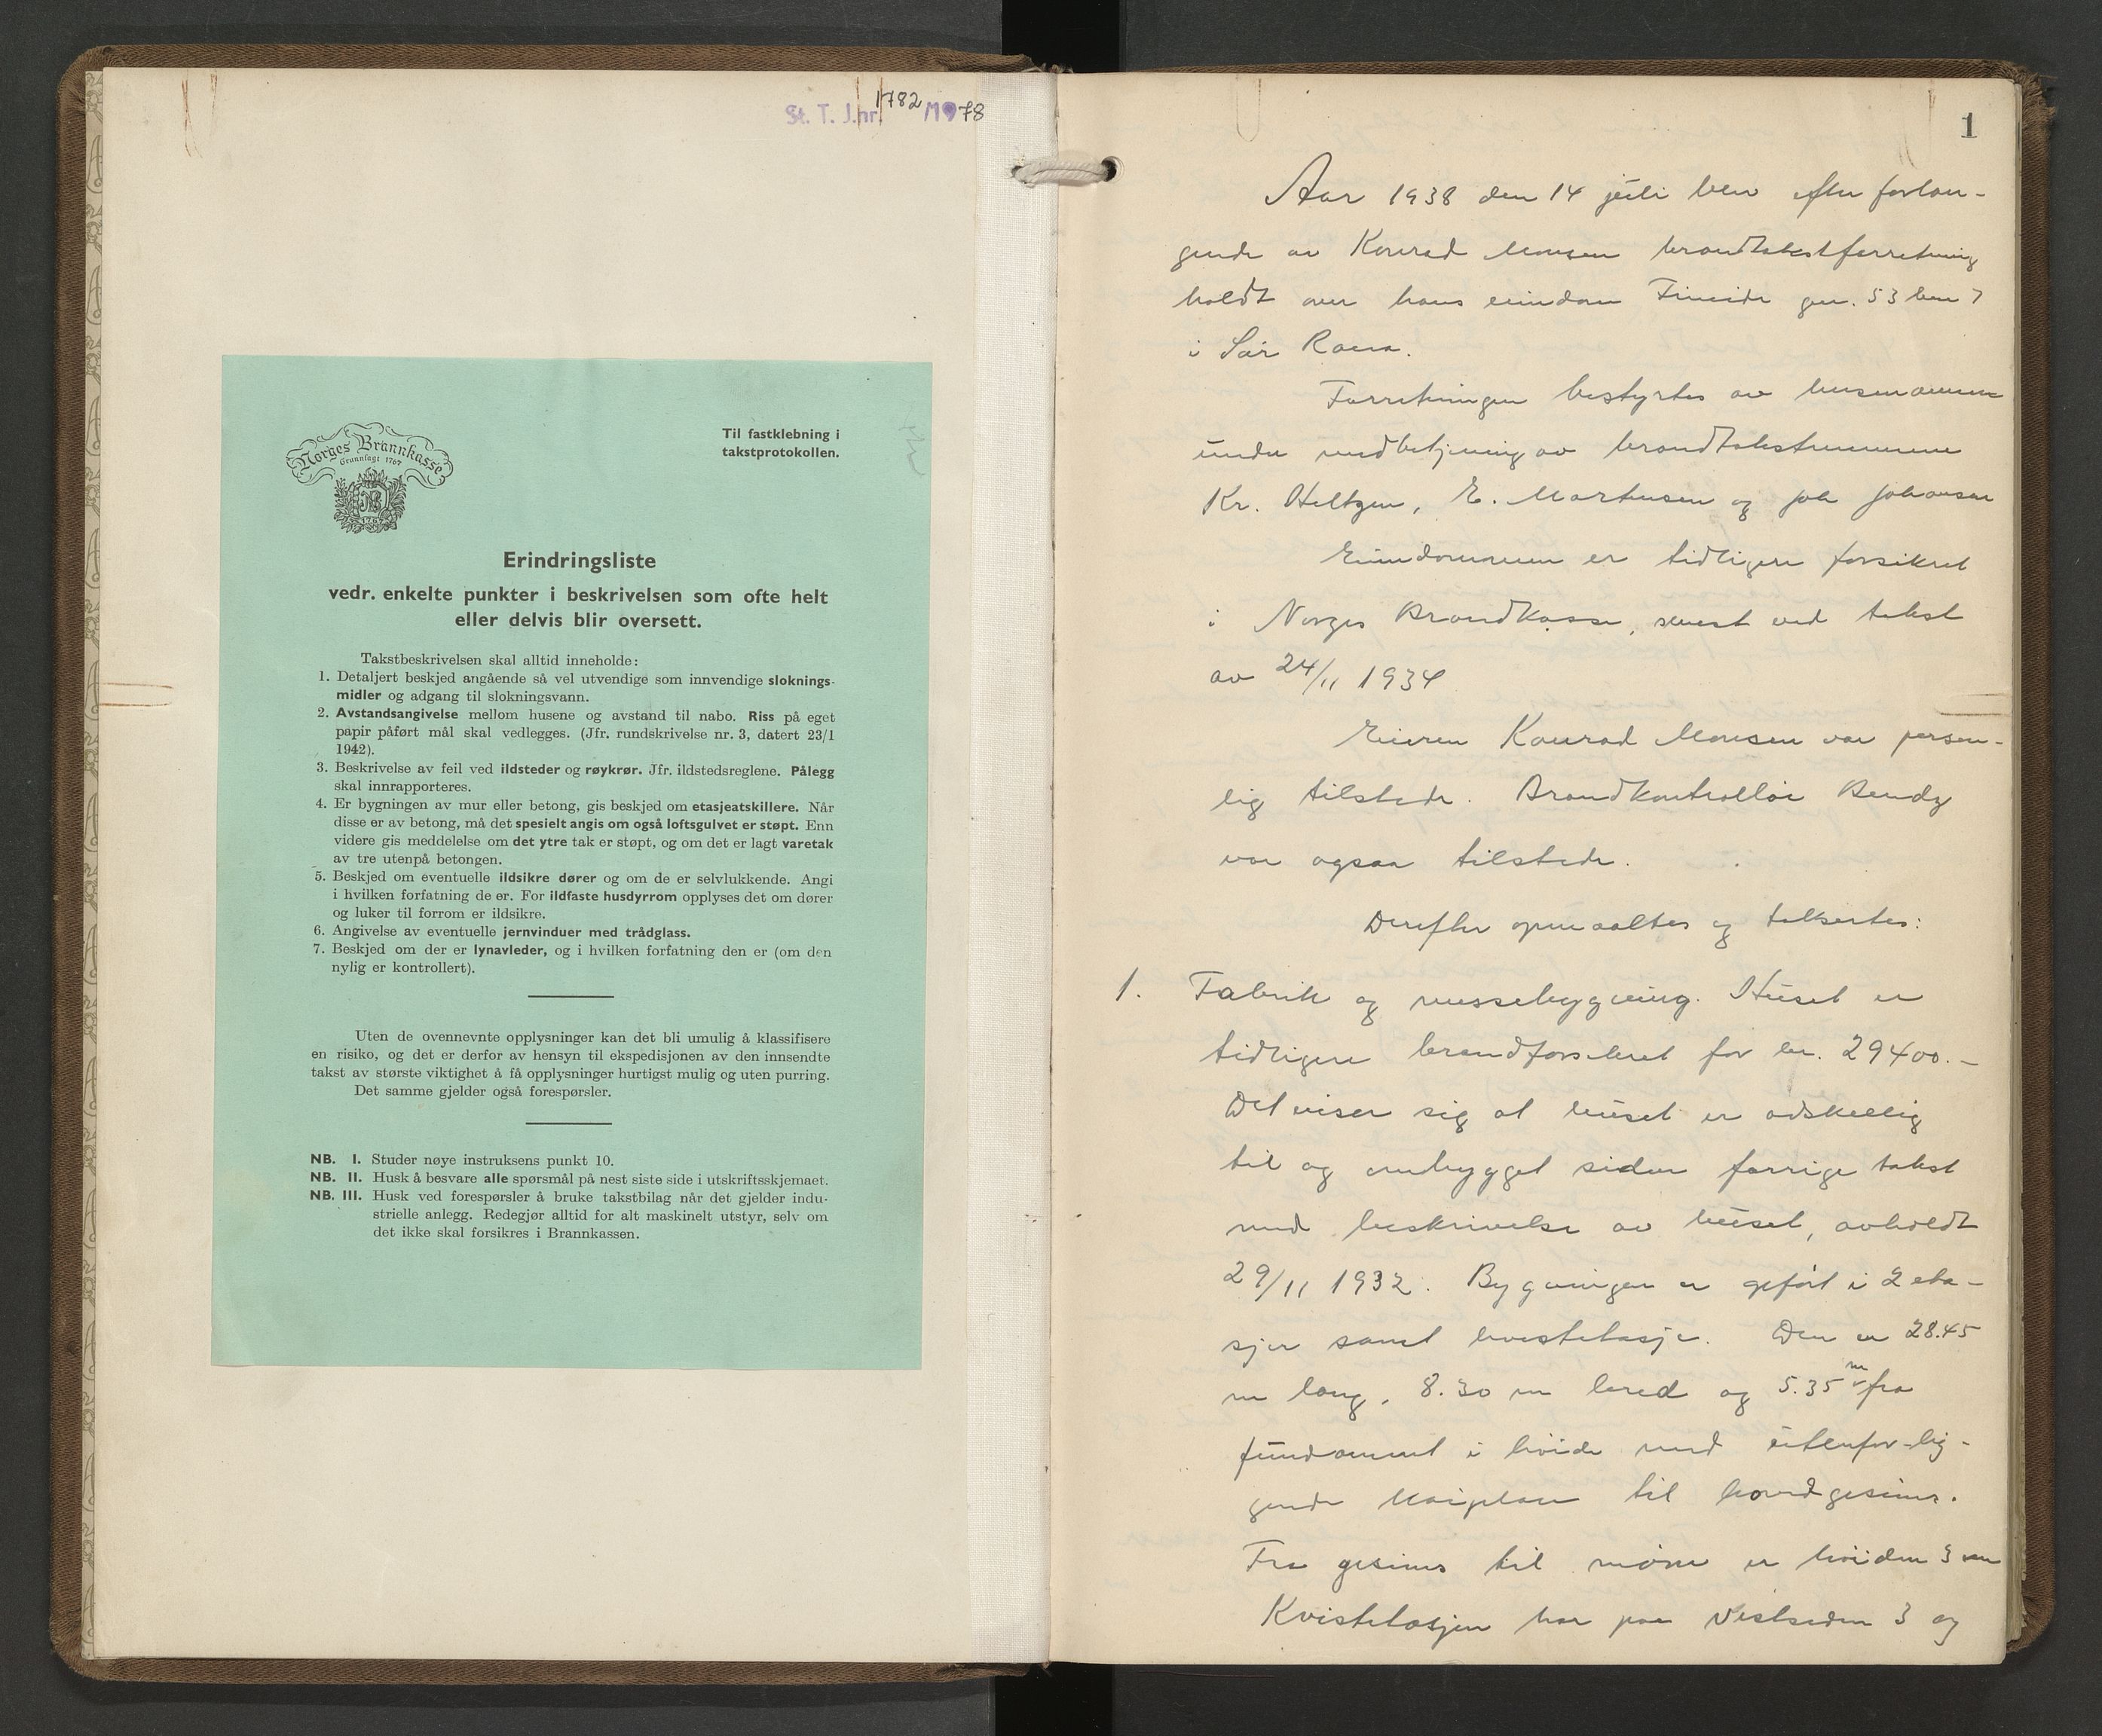 St. T. J.nr. 1782 /1978
Til fastklebning i
takstprotokollen.
Norges Brannkasse
Grunnlagt 1767
1767
Erindringsliste
vedr. enkelte punkter i beskrivelsen som ofte helt
eller delvis blir oversett.
Takstbeskrivelsen skal alltid inneholde:
1. Detaljert beskjed angående så vel utvendige som innvendige sloknings-
midler og adgang til slokningsvann.
2. Avstandsangivelse mellom husene og avstand til nabo. Riss på eget
papir påført mål skal vedlegges. (Jfr. rundskrivelse nr. 3, datert 23/1
1942).
3. Beskrivelse av feil ved ildsteder og røykrør. Jfr. ildstedsreglene. Pålegg
skal innrapporteres.
4. Er bygningen av mur eller betong, gis beskjed om etasjeatskillere. Når
disse er av betong, må det spesielt angis om også loftsgulvet er støpt. Enn
videre gis meddelelse om det ytre tak er støpt, og om det er lagt varetak
av tre utenpå betongen.
5. Beskjed om eventuelle ildsikre dører og om de er selvlukkende. Angi
i hvilken forfatning de er. For ildfaste husdyrrom opplyses det om dører
og luker til forrom er ildsikre.
6. Angivelse av eventuelle jernvinduer med trådglass.
7. Beskjed om der er lynavleder, og i hvilken forfatning den er (om den
nylig er kontrollert).
Uten de ovennevnte opplysninger kan det bli umulig å klassifisere
en risiko, og det er derfor av hensyn til ekspedisjonen av den innsendte
takst av største viktighet å få opplysninger hurtigst mulig og uten purring.
Det samme gjelder også forespørsler.
NB. I. Studer nøye instruksens punkt 10.
NB. II. Husk å besvare alle spørsmål på nest siste side i utskriftsskjemaet.
NB. III. Husk ved forespørsler å bruke takstbilag når det gjelder indu-
strielle anlegg. Redegjør alltid for alt maskinelt utstyr, selv om
det ikke skal forsikres i Brannkassen.
1
Aar 1938 den 14 juli blev efter forlan-
gende av Konrad Monsen brandtakstforretning
holdt over hans eiendom Finneide gnr. 53 bnr 7
i Sør Rana.
Forretningen bestyrtes av lensmannen
under medbetjening av brandtakstmennene
Kr. Heltzen, E. Martinsen og Joh Johansen
Eiendommen er tidligere forsikret
i Norges Brandkasse, senest ved takst
av 24/11 1934
Eieren Konrad Monsen var person-
lig tilstede. Brandkontrollør Bendz
var ogsaa tilstede.
Derefter opmaaltes og taksertes:
1. Fabrik og messebygning. Huset er
tidligere brandforsikret for kr. 29400.-
Det viser sig at huset er adskillig
til og ombygget siden forrige takst
med beskrivelse av huset, avholdt
29/11 1932. Bygningen er opført i 2 eta-
sjer samt kvistetasje. Den er 28.45
m lang, 8.30 m bred og 5.35 m fra
fundament i høide med utenfor-lig-
gende kaiplan til hovedgesims.
Fra gesims til møne er høiden 3 m
Kvistetasjen har paa Vestsiden 3 og